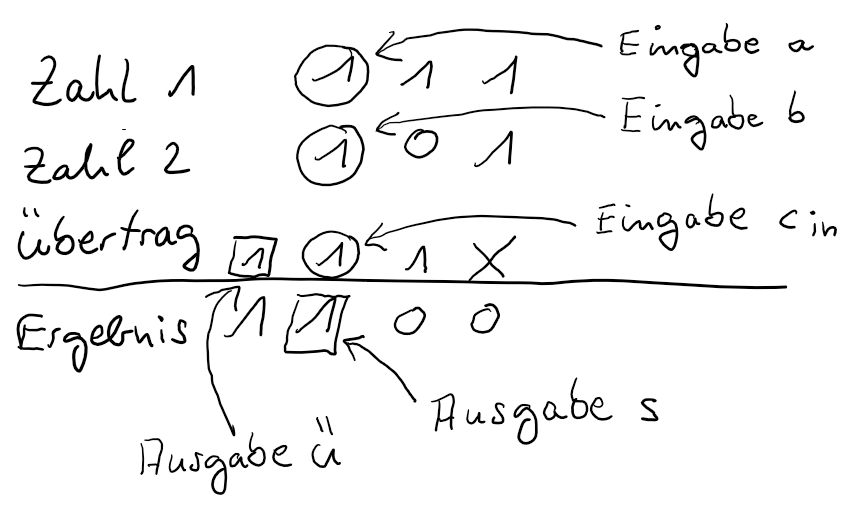 Zahl 1 1 1 1 Eingabe a
Zahl 2 1 0 1 Eingabe b
Übertrag 1 1 1 X Eingabe c in
Ergebnis 1 1 0 0
Ausgabe s
Ausgabe ü